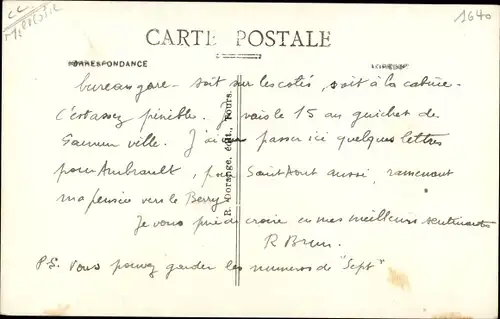 1640
CARTE POSTALE
CORRESPONDANCE
ADRESSE
bureau gare - soit sur les côtés, soit à la cabine -
c'est assez pénible. Je vais le 15 au guichet de
Saumur ville. J'ai passer ici quelques lettres
pour Ambrault, Saint Aout aussi, ramenant
ma pensée vers le Berry
Je vous prie de croire en mes meilleurs sentiments
R Brun.
PS. Vous pouvez garder les numeros de "Sept"
R. Dorange, édit., Tours.